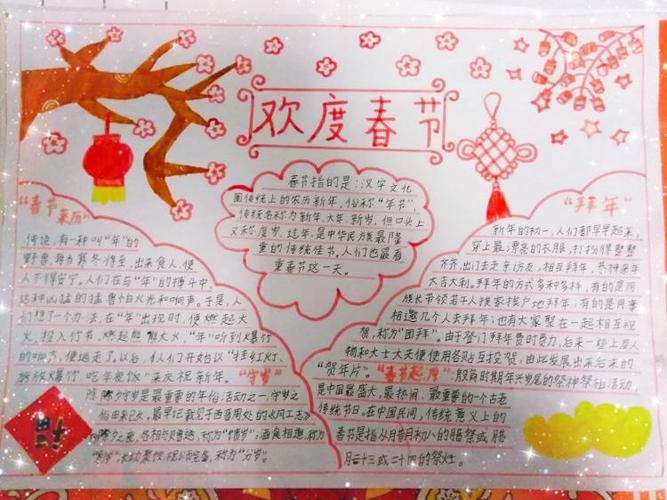 欢度春节
春节指的是:汉字文化
圈传统上的农历新年,俗称“年节”,
传统名称为新年、大年、新岁,但口头上
又称度岁、过年,是中华民族最隆
重的传统佳节,人们也最看
重春节这一天。
“春节来历”
传说,有一种叫“年”的
野兽每当寒冬将至,出来食人,使
人不得安宁。人们在与“年”的搏斗中,
这种凶猛的猛兽怕火光和响声。于是,人
们想了个办法,在“年”出现时,便燃起大
火,投入竹节,燃起熊熊大火,“年”听到火爆竹
的响声,便逃走了。以后,人们开始以“挂红灯、
放爆竹、吃年夜饭”来庆祝新年。“守岁”
除夕守岁是最重要的年俗活动之一,守岁之
俗由来已久。最早记载见于西晋周处的《风土志》
除夕之夜,各相与赠送,称为“馈岁”,酒食相邀,称为
长幼聚饮,祝颂完备,称为“分岁”。
福
“拜年”
新年的初一,人们都早早起来,
穿上最漂亮的衣服,打扮得整整
齐齐,出门去走亲访友,相互拜年,恭祝来年
大吉大利。拜年的方式多种多样,有的是同
族长带领若干人挨家挨户地拜年;有的是同事
相邀几个人去拜年;也有大家聚在一起相互祝
贺,称为“团拜”。由于登门拜年费时费力,后来一些上层人
物和士大夫便使用各贴互投贺,由此发展出来后来的
“贺年片”。“春节起源”殷商时期年头岁尾的祭神祭祖活动,
是中国最盛大、最热闹、最重要的一个古老
传统节日。在中国民间,传统意义上的
春节是指从腊月初八的腊祭或腊
月二十三或二十四的祭灶。